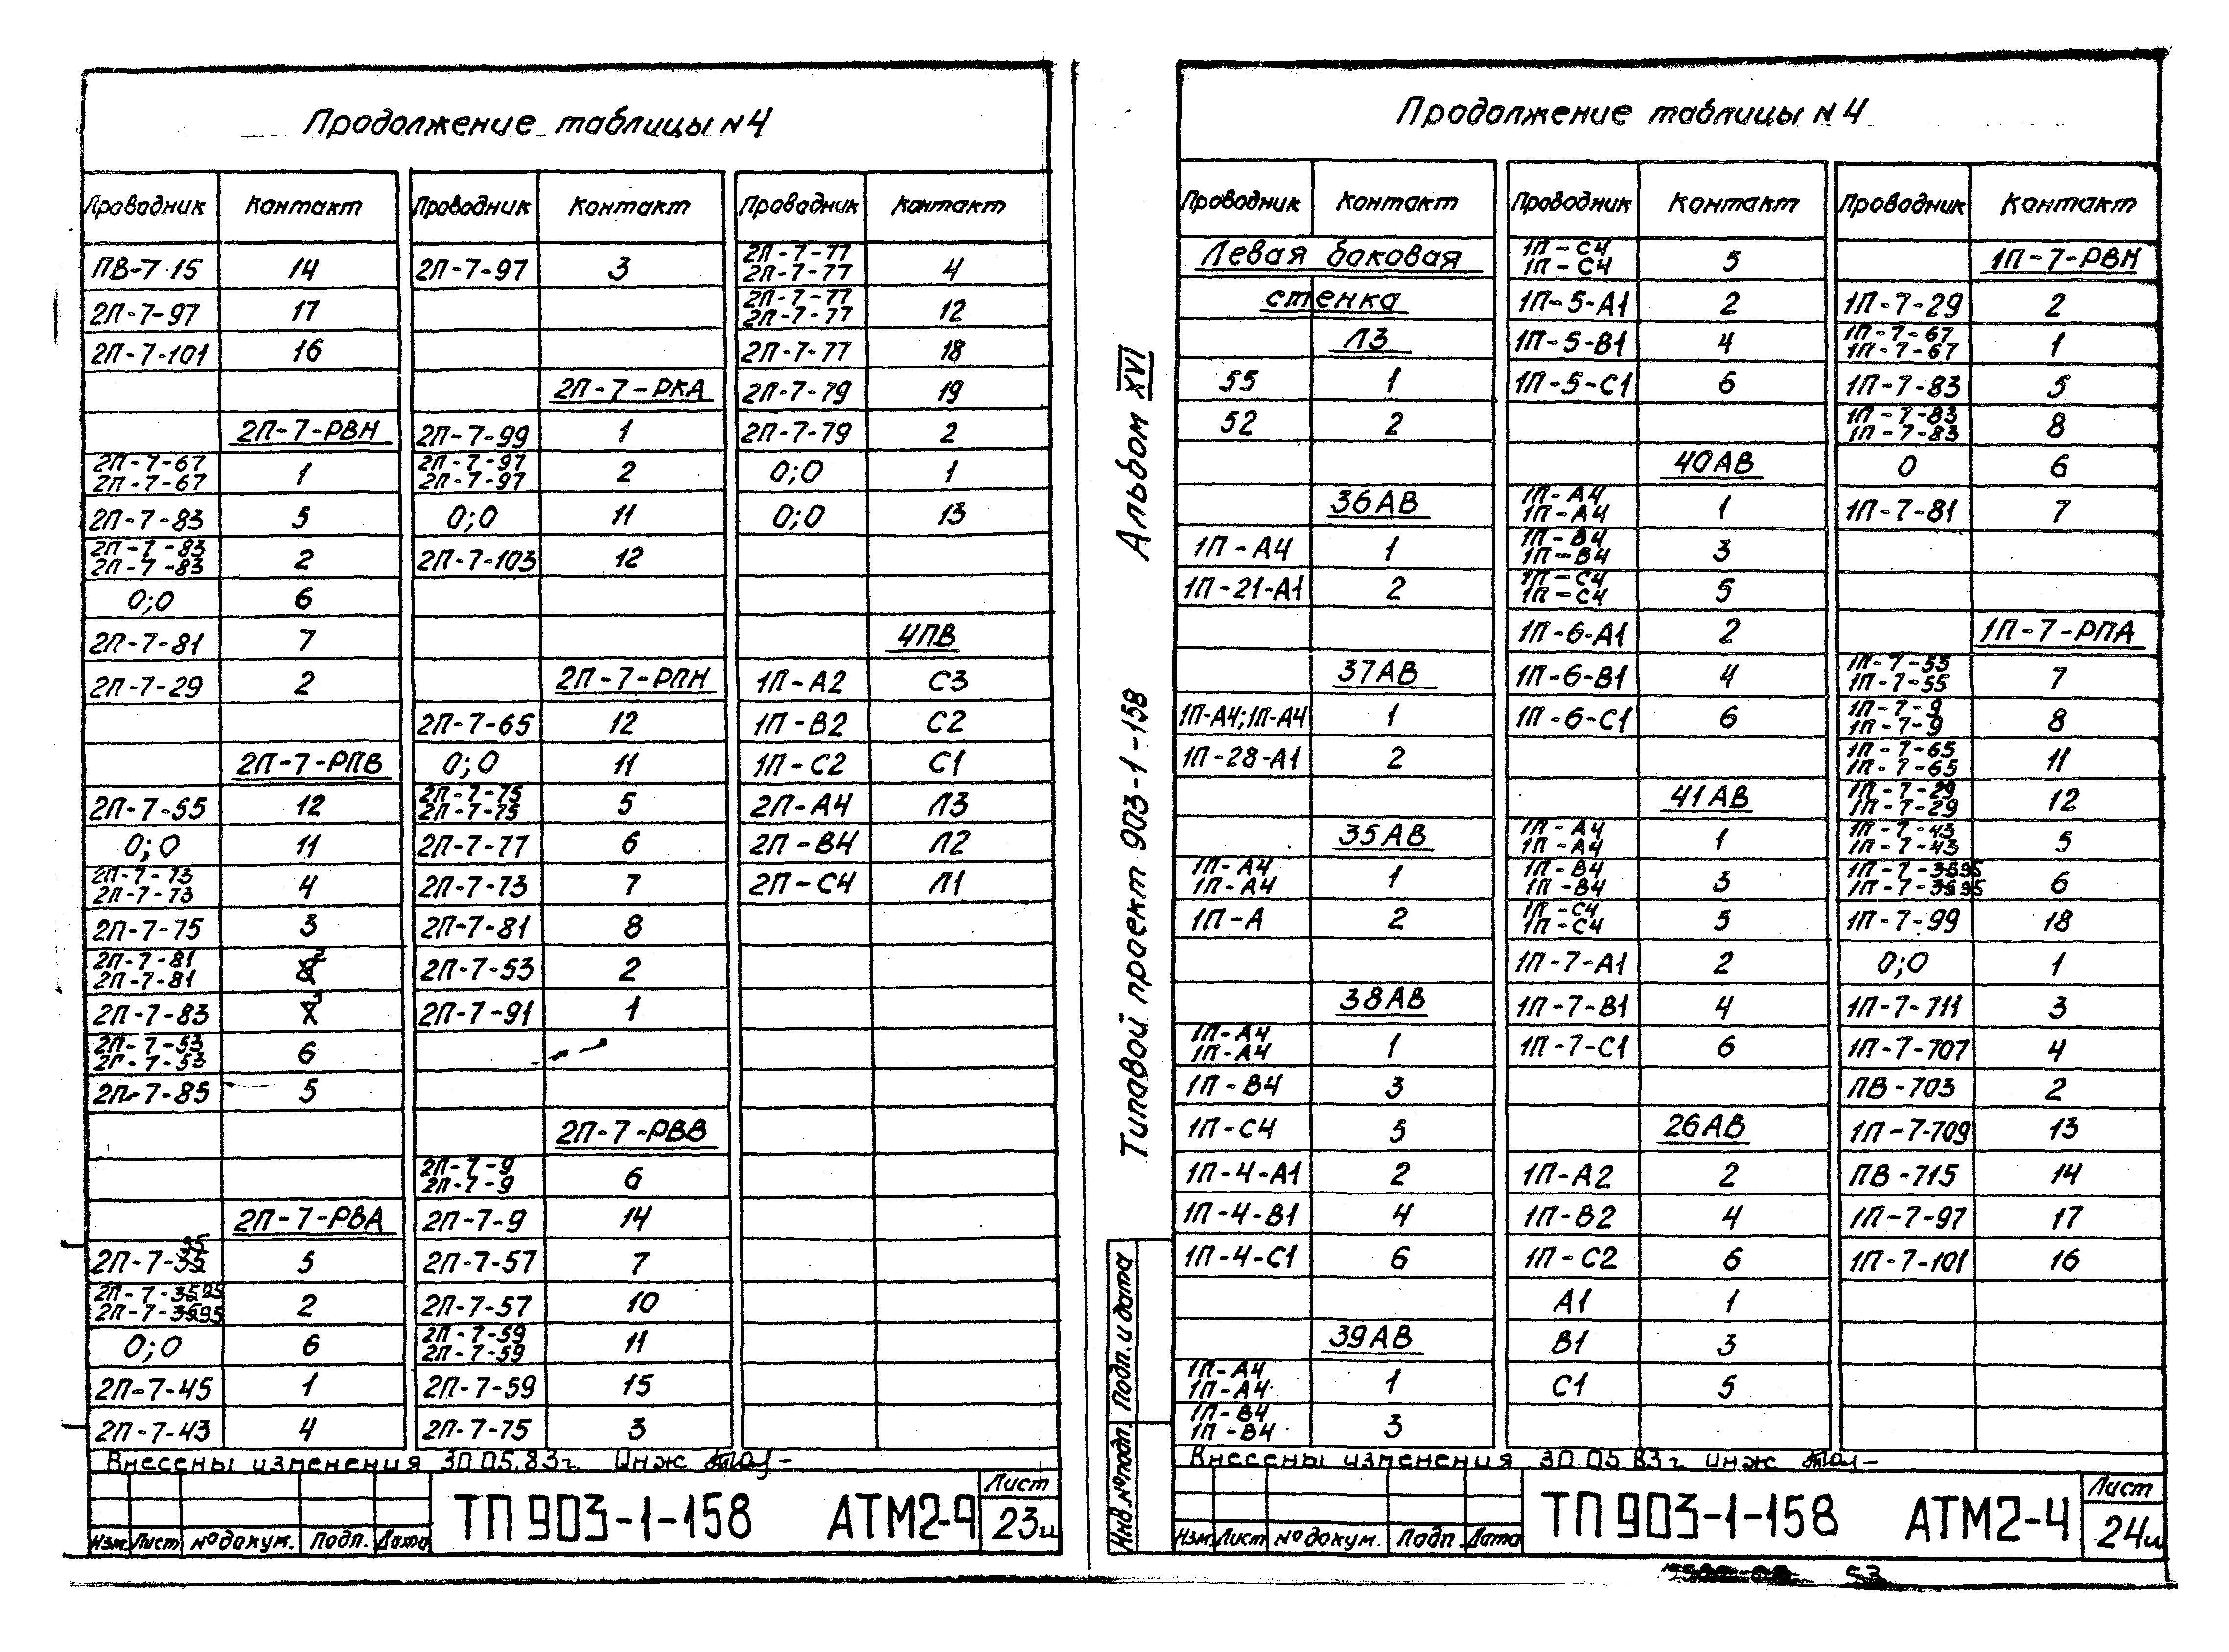 Продолжение таблицы №4
Проводник Контакт Проводник Контакт Проводник Контакт
ПВ-7 15 14 2П-7-97 3 2П-7-77 2П-7-77 4
2П-7-97 17 2П-7-77 2П-7-77 12
2П-7-101 16 2П-7-77 18
2П-7-РКА 2П-7-79 19
2П-7-РВН 2П-7-99 1 2П-7-79 2
2П-7-67 2П-7-67 1 2П-7-97 2П-7-97 2 0;0 1
2П-7-83 5 0;0 11 0;0 13
2П-7-83 2П-7-83 2 2П-7-103 12
0;0 6
2П-7-81 7 4ПВ
2П-7-29 2 2П-7-РПН 1П-А2 С3
2П-7-65 12 1П-В2 С2
2П-7-РПВ 0;0 11 1П-С2 С1
2П-7-55 12 2П-7-75 2П-7-75 5 2П-А4 Л3
0;0 11 2П-7-77 6 2П-В4 Л2
2П-7-73 2П-7-73 4 2П-7-73 7 2П-С4 Л1
2П-7-75 3 2П-7-81 8
2П-7-81 2П-7-81 2 2П-7-53 2
2П-7-83 1 2П-7-91 1
2П-7-53 2П-7-53 6
2П-7-85 5
2П-7-РВВ
2П-7-9 2П-7-9 6
2П-7-РВА 2П-7-9 14
2П-7-35 5 2П-7-57 7
2П-7-95 2П-7-95 2 2П-7-57 10
0;0 6 2П-7-59 2П-7-59 11
2П-7-45 1 2П-7-59 15
2П-7-43 4 2П-7-75 3
Внесены изменения 30.05.83г. Инж
Изм. Лист № докум. Подп. Дата ТП 903-1-158 АТМ2-4 Лист 23и
Альбом XVI
Типовой проект 903-1-158
Подп. и дата
Инв. № подл.
Продолжение таблицы №4
Проводник Контакт Проводник Контакт Проводник Контакт
Левая боковая 1П-С4 1П-С4 5 1П-7-РВН
стенка 1П-5-А1 2 1П-7-29 2
Л3 1П-5-В1 4 1П-7-67 1П-7-67 1
55 1 1П-5-С1 6 1П-7-83 5
52 2 1П-7-83 1П-7-83 8
40АВ 0 6
36АВ 1П-А4 1П-А4 1 1П-7-81 7
1П-А4 1 1П-В4 1П-В4 3
1П-21-А1 2 1П-С4 1П-С4 5
1П-6-А1 2 1П-7-РПА
37АВ 1П-6-В1 4 1П-7-55 1П-7-55 7
1П-А4;1П-А4 1 1П-6-С1 6 1П-7-9 1П-7-9 8
1П-28-А1 2 1П-7-65 1П-7-65 11
41АВ 1П-7-29 1П-7-29 12
35АВ 1П-А4 1П-А4 1 1П-7-43 1П-7-43 5
1П-А4 1П-А4 1 1П-В4 1П-В4 3 1П-7-95 1П-7-95 6
1П-А 2 1П-С4 1П-С4 5 1П-7-99 18
1П-7-А1 2 0;0 1
38АВ 1П-7-В1 4 1П-7-711 3
1П-А4 1П-А4 1 1П-7-С1 6 1П-7-707 4
1П-В4 3 ПВ-703 2
1П-С4 5 26АВ 1П-7-709 13
1П-4-А1 2 1П-А2 2 ПВ-715 14
1П-4-В1 4 1П-В2 4 1П-7-97 17
1П-4-С1 6 1П-С2 6 1П-7-101 16
А1 1
39АВ В1 3
1П-А4 1П-А4 1 С1 5
1П-В4 1П-В4 3
Внесены изменения 30.05.83г. Инж
Изм. Лист № докум. Подп. Дата ТП 903-1-158 АТМ2-4 Лист 24и
53